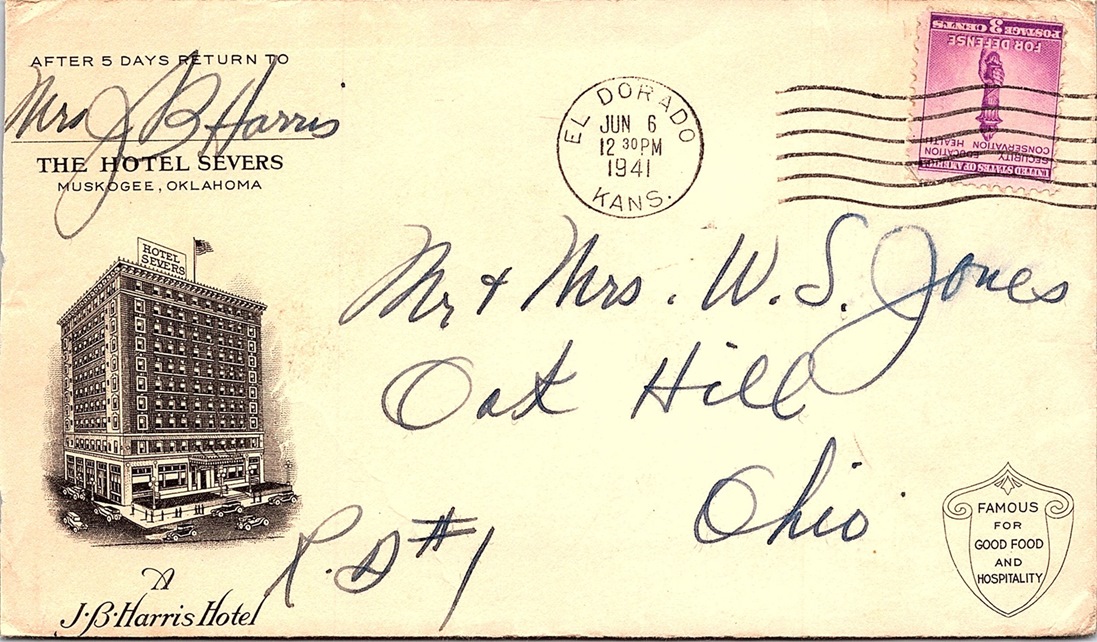 AFTER 5 DAYS RETURN TO
Mrs J B Harris
THE HOTEL SEVERS
MUSKOGEE, OKLAHOMA
EL DORADO
JUN 6
12 30 PM
1941
KANS.
UNITED STATES OF AMERICA
SECURITY
EDUCATION
CONSERVATION
HEALTH
FOR DEFENSE
POSTAGE 3 CENTS
HOTEL
SEVERS
Mr & Mrs. W. S. Jones
Oak Hill
Ohio
R. D #1
A
J·B·Harris Hotel
FAMOUS
FOR
GOOD FOOD
AND
HOSPITALITY